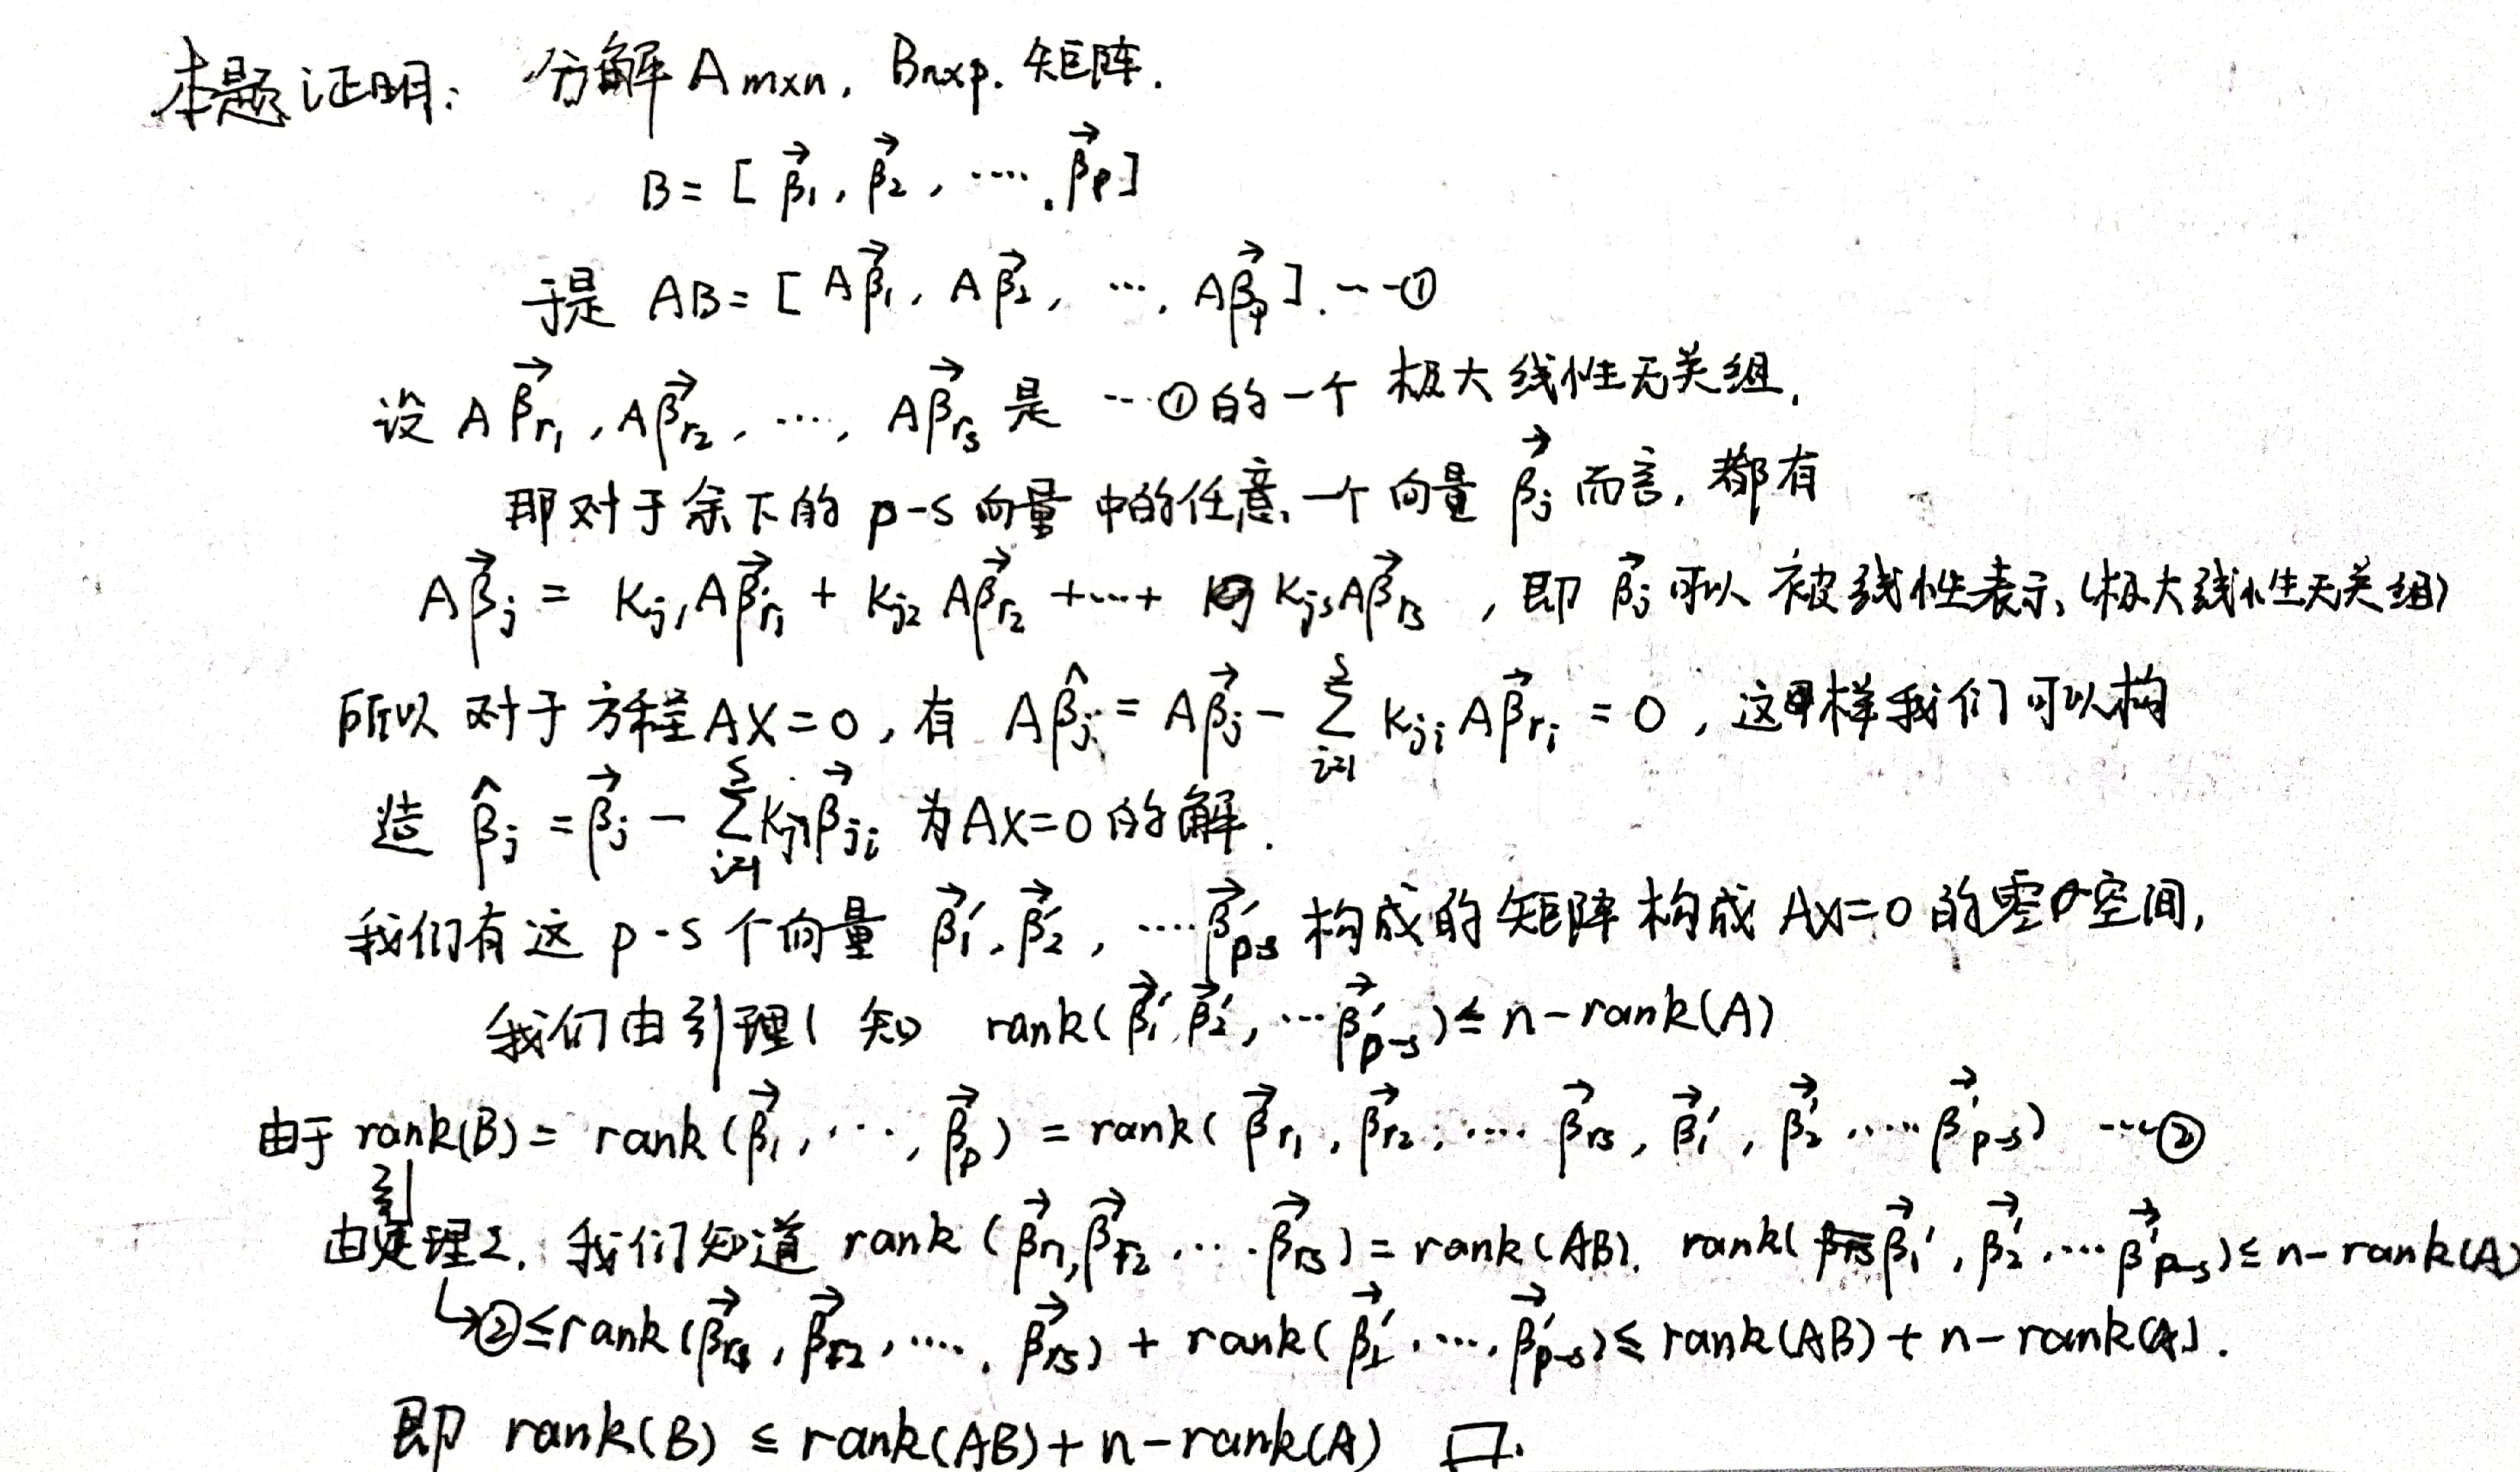 本题证明: 分解 A m×n, Bn×p. 矩阵.
B = [ β⃗₁, β⃗₂, ····, β⃗p ]
于是 AB = [ Aβ⃗₁, Aβ⃗₂, ···, Aβ⃗p ]. ---①
设 Aβ⃗r₁, Aβ⃗r₂, ···, Aβ⃗rs 是 ···①的一个 极大线性无关组.
即对于余下的 p-s 向量 中的任意一个向量 β⃗j 而言, 都有
Aβ⃗j = Kj₁Aβ⃗r₁ + Kj₂Aβ⃗r₂ +···+ KjsAβ⃗rs , 即 β⃗j 可以 被线性表示 (极大线性无关组)
所以 对于方程AX=0, 有 Aβ̂j = Aβ⃗j - Σ(i=1→s) Kji Aβ⃗ri = 0, 这样我们可以构
造 β̂j = β⃗j - Σ(i=1→s) Kji β⃗ji 为AX=0的解.
我们有这 p-s 个向量 β⃗₁′, β⃗₂′, ····β⃗′p-s 构成的矩阵 构成 AX=0 的零空间,
我们由引理1 知 rank( β⃗₁′, β⃗₂′, ···β⃗′p-s ) ≤ n-rank(A)
由于 rank(B) = rank(β⃗₁, ···, β⃗p) = rank( β⃗r₁, β⃗r₂, ···· β⃗rs, β⃗₁′, β⃗₂′ ····· β⃗′p-s) ---②
由引理2, 我们知道 rank (β⃗r₁, β⃗r₂, ··· β⃗rs) = rank(AB), rank( β⃗₁′, β⃗₂′, ···· β⃗′p-s) ≤ n-rank(A)
↳②≤rank(β⃗r₁, β⃗r₂, ····, β⃗rs) + rank( β⃗₁′, ···, β⃗′p-s) ≤ rank(AB) + n-rank(A).
即 rank(B) ≤ rank(AB) + n-rank(A) □.